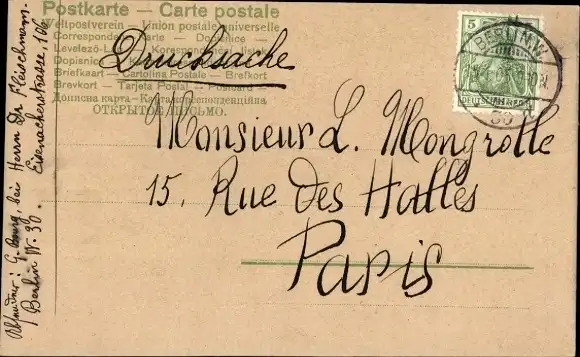 Postkarte — Carte postale
Weltpostverein — Union postale universelle
Correspondenzkarte — Dopisnice —
Levelező-Lap — Korespondenční lístek
Dopisnica —
Briefkaart — Cartolina Postale — Brefkort
Brevkort — Tarjeta Postal — Postcard —
ОТКРЫТОЕ ПИСЬМО.
Drucksache
5
BERLIN W.
DEUTSCHES REICH
30
Monsieur L. Mongrolle
15, Rue des Halles
Paris
Absender: G. bei Herrn Dr. Fleischmann.
Berlin W. 30. Eisenacherstrasse, 106